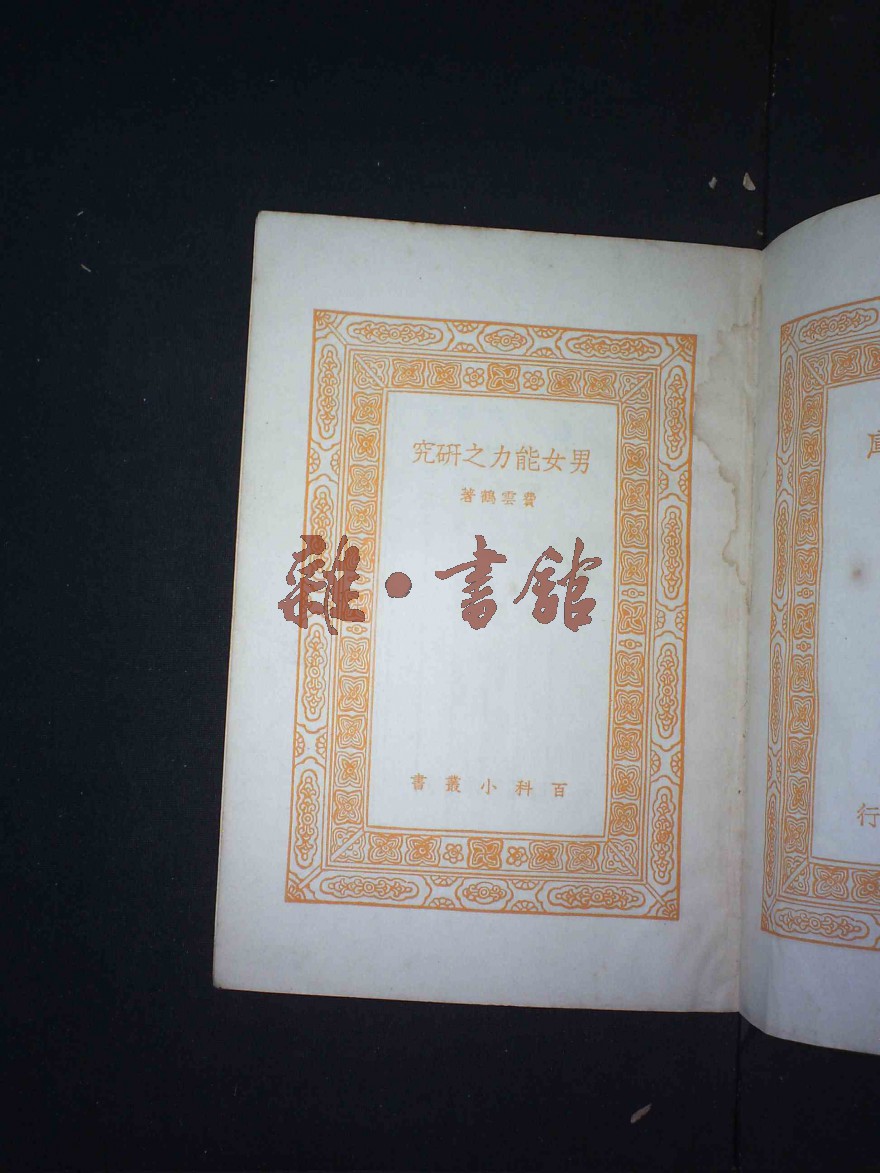 男女能力之研究
費雲鶴著
雜·書館
百科小叢書
庫
行